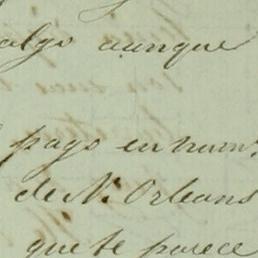 algo aunque
pago en num.
de N. Orleans
que te parece